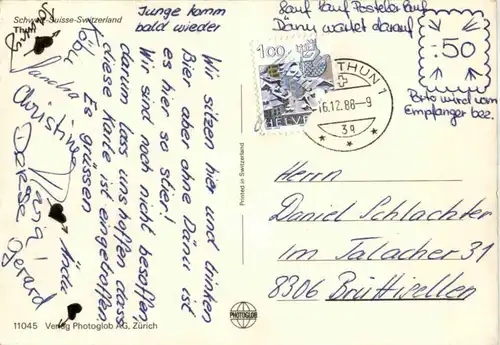 Schweiz-Suisse-Switzerland
Thun
Junge komm
bald wieder
Wir sitzen hier und trinken
Bier aber ohne Dänu ist
es hier so stier!
Wir sind noch nicht besoffen,
darum lass uns hoffen dass
diese Karte ist eingetroffen
Es grüssen
Köbu
Sandra
Christine
Gerard
Lauf Lauf Postelerlauf
Dänu wartet darauf
:50
Porto wird vom
Empfänger bez.
100
HELVE
THUN 1
16.12.88-9
3a
Herrn
Daniel Schlachter
im Talacher 31
8306 Brüttisellen
Printed in Switzerland
PHOTOGLOB
11045 Verlag Photoglob AG, Zürich